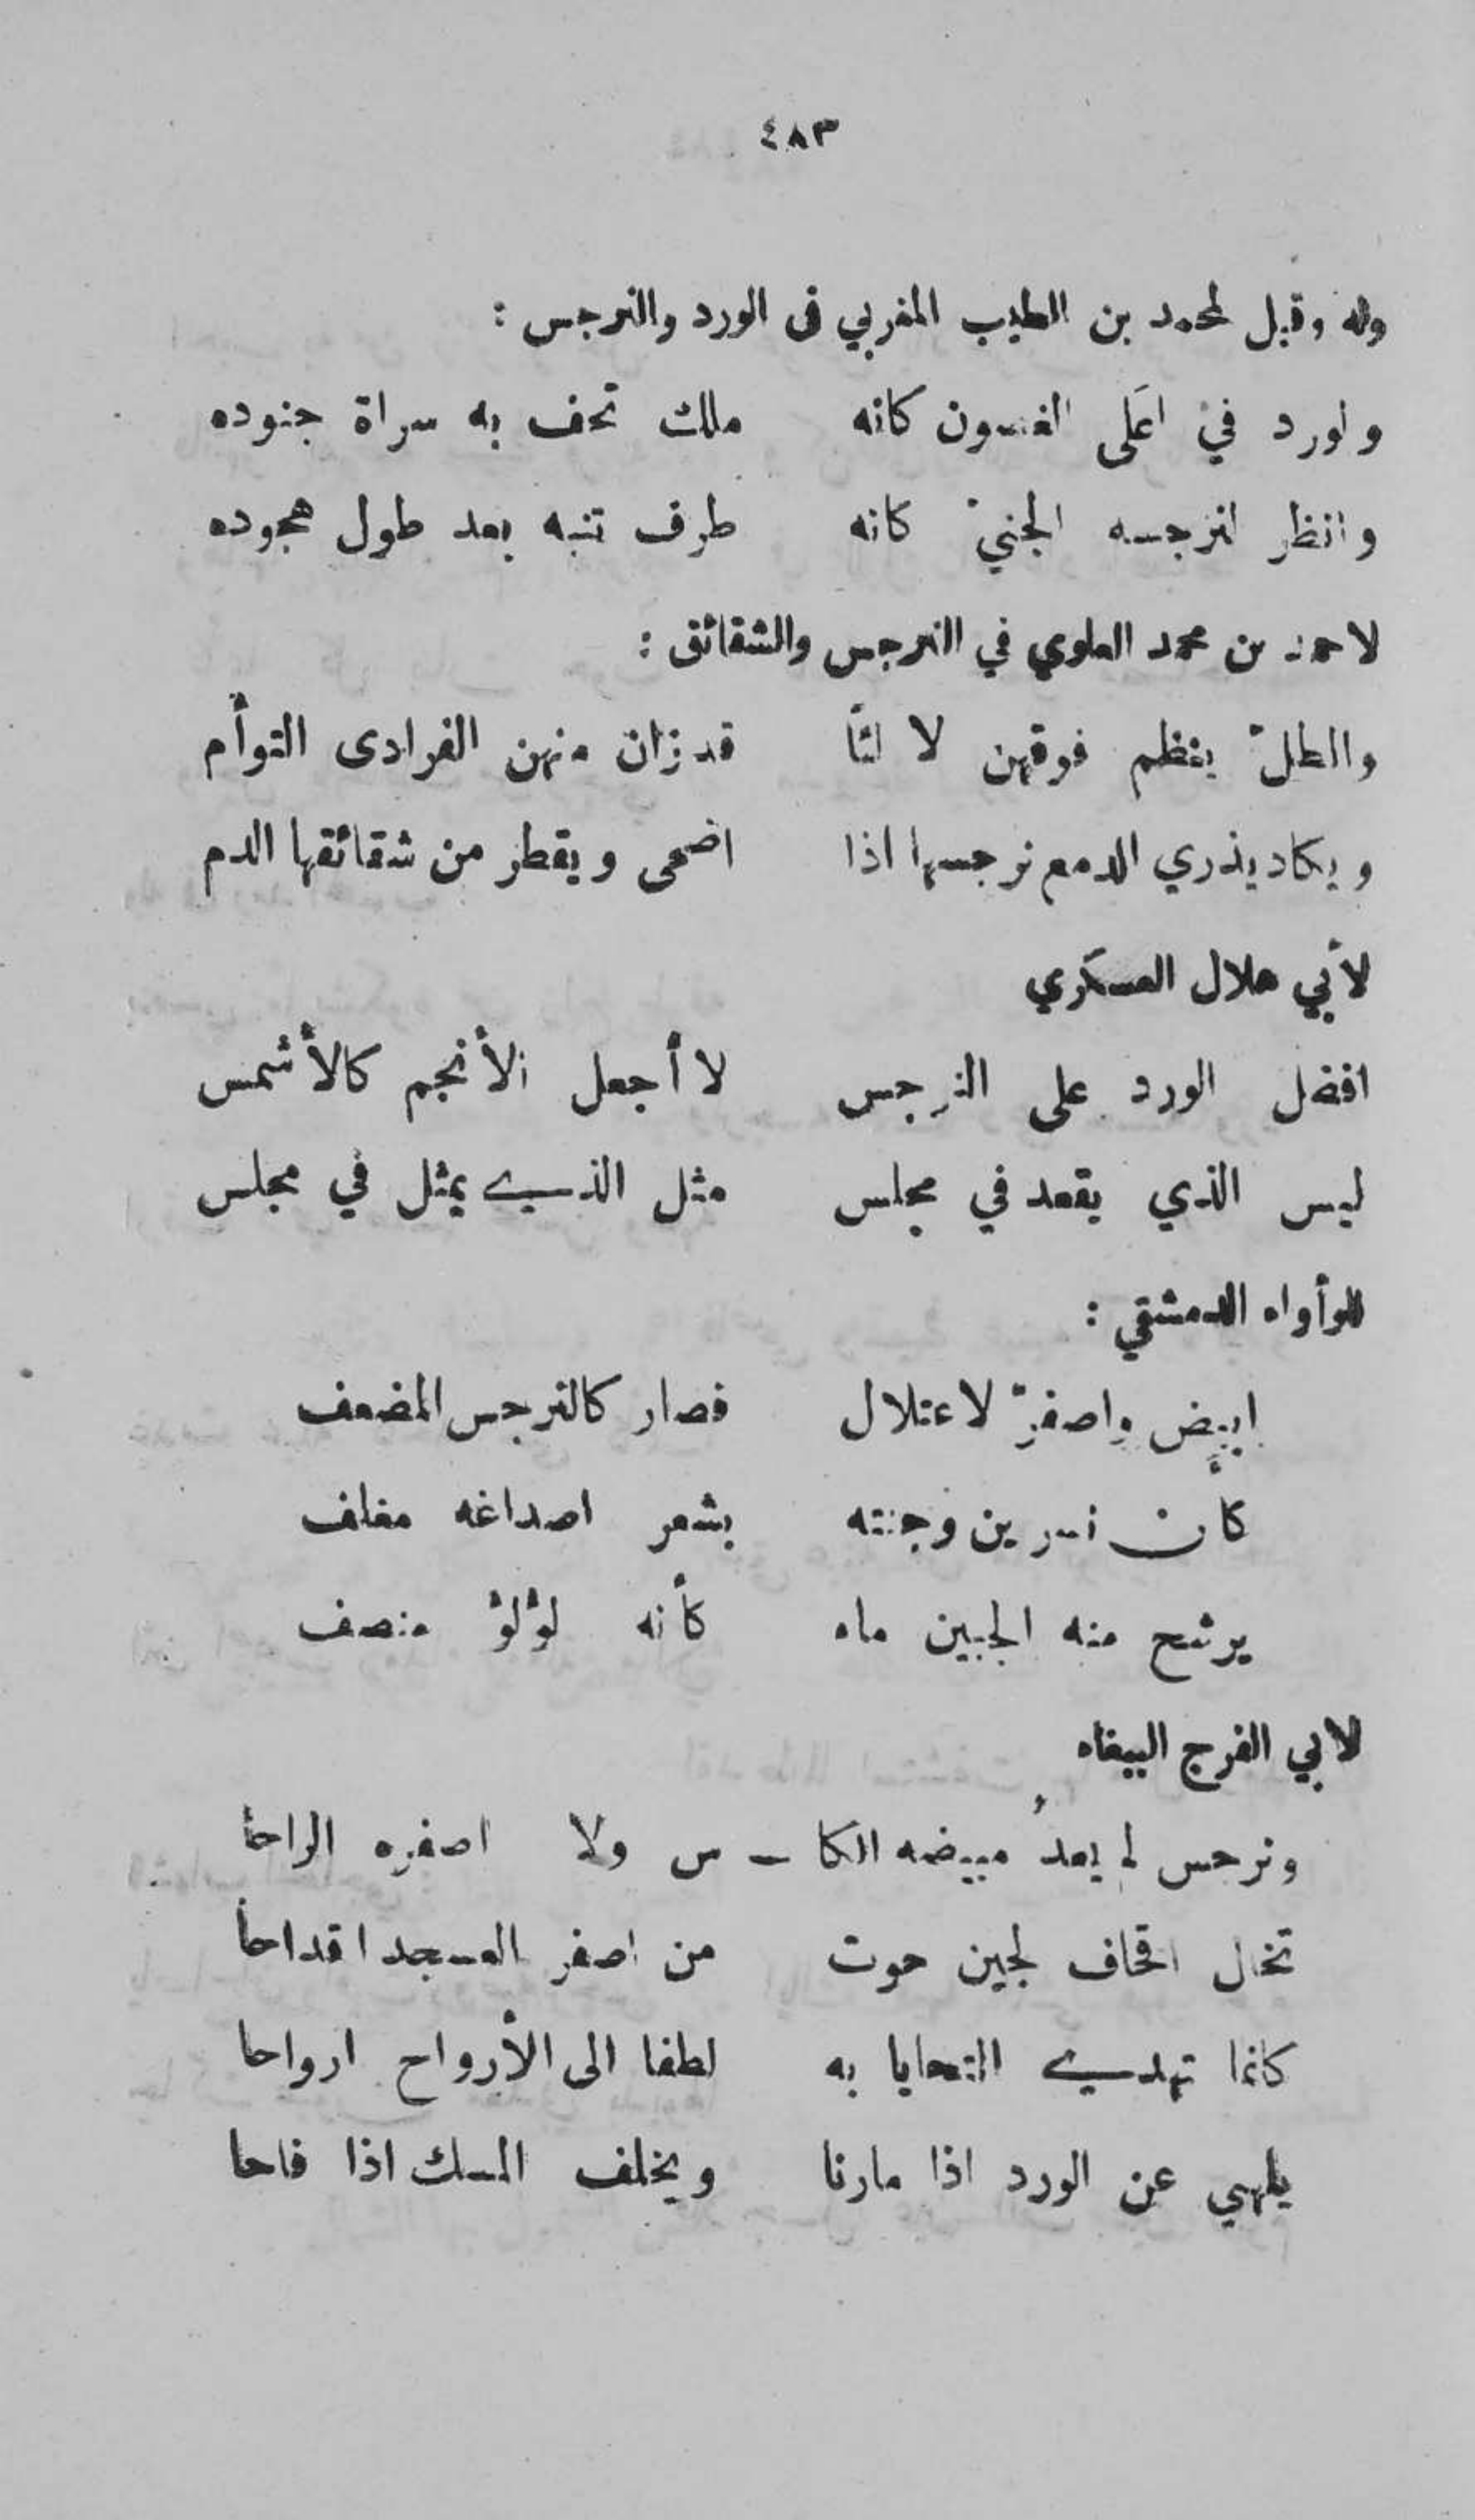 ٤٨٣
وله وقيل لمحمد بن الطيب المغربي في الورد والنرجس :
والورد في اعَلى الغصون كانه ملك تحف به سراة جنوده
وانظر لنرجسه الجنيّ كانه طرف تنبه بعد طول هجوده
لاحمد بن محمد العلوي في النرجس والشقائق :
والطلّ ينظم فوقهن لا لئًا قد زان منهن الفرادى التوأم
ويكاد يذري الدمع نرجسها اذا اضحى ويقطر من شقائقها الدم
لأبي هلال العسكري
افضل الورد على النرجس لا أجعل الأنجم كالأشمس
ليس الذي يقعد في مجلس مثل الذي يمثل في مجلس
للوأواء الدمشقي :
ابيض واصفرّ لاعتلال فصار كالنرجس المضعف
كأن نسرين وجنته بشعر اصداغه مغلف
يرشح منه الجبين ماء كأنه لؤلؤ منصف
لابي الفرج الببغاء
ونرجس لم يعدُ مبيضه الكا ـ س ولا اصفره الراحا
تخال اقحاف لجين حوت من اصفر العسجد اقداحاً
كانما تهدي التحايا به لطفا الى الأرواح ارواحا
يلهي عن الورد اذا مارنا ويخلف المسك اذا فاحا